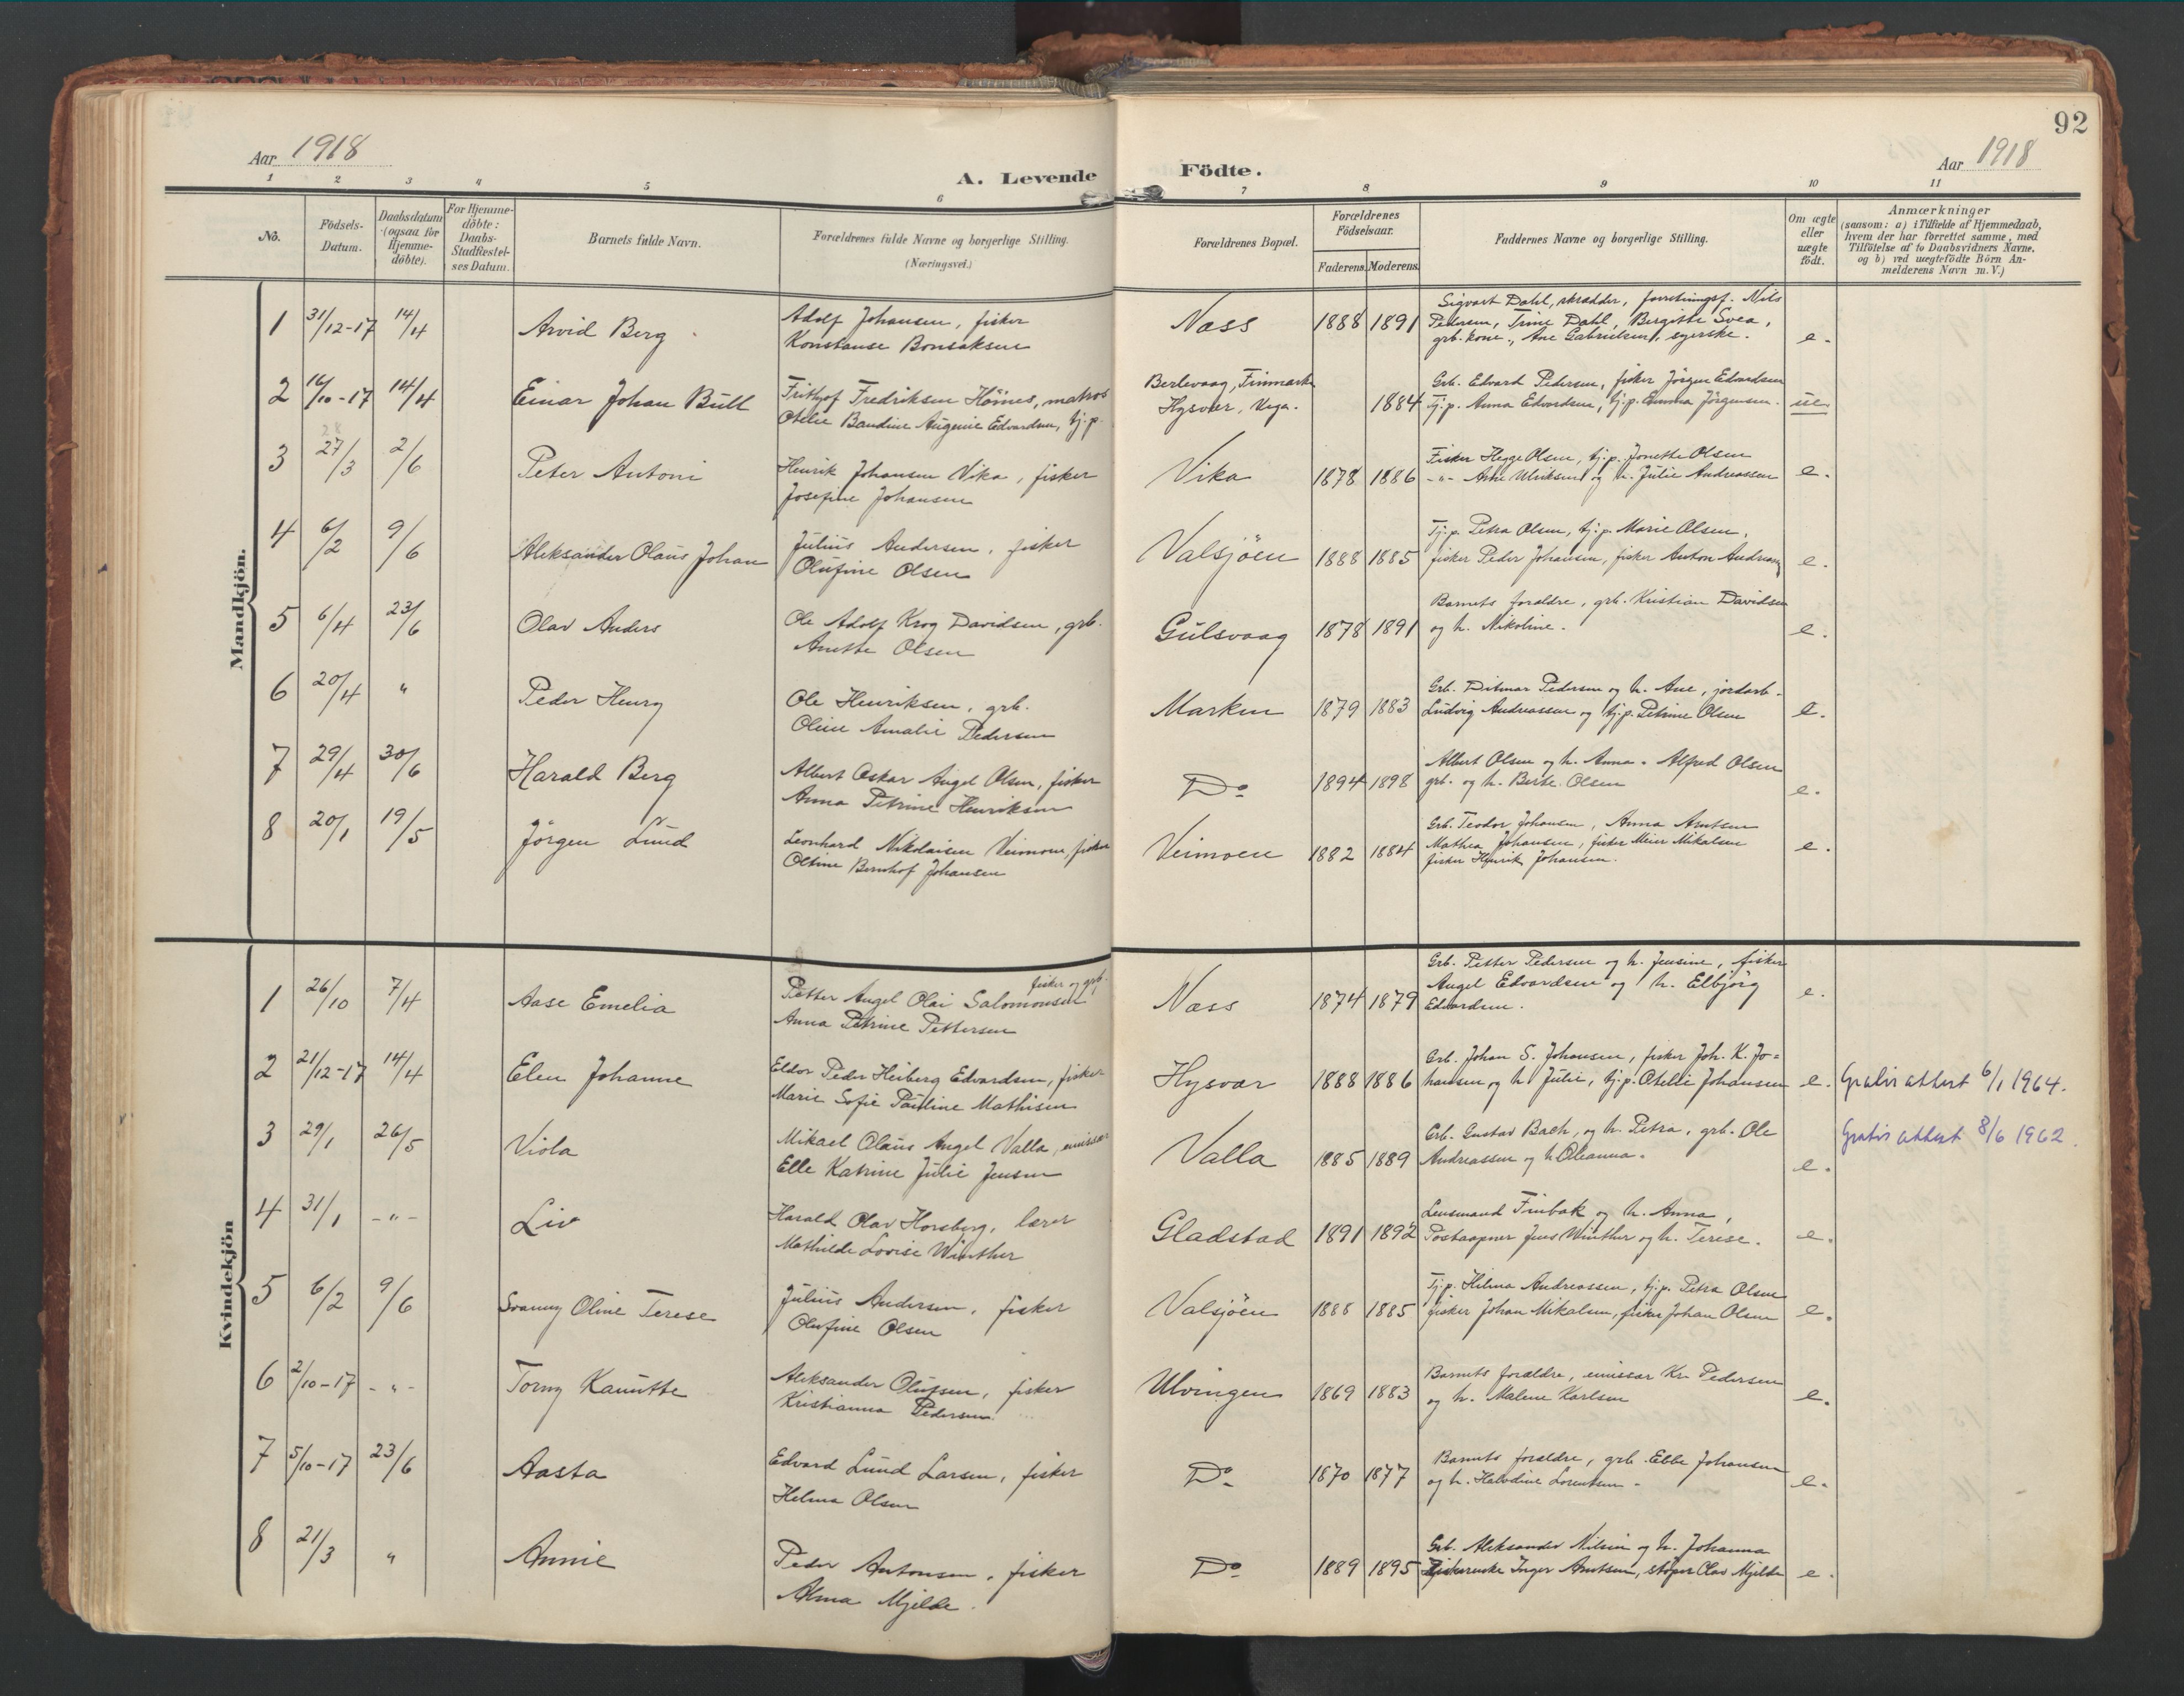 92
Aar 1918
A. Levende Födte.
Aar 1918
1 2 3 4 5 6 7 8 9 10 11
No.
Födsels-Datum.
Daabsdatum (ogsaa for Hjemme-döbte).
For Hjemme-döbte: Daabs-Stadfæstel-ses Datum.
Barnets fulde Navn.
Forældrenes fulde Navne og borgerlige Stilling.
(Næringsvei.)
Forældrenes Bopæl.
Forældrenes Födselsaar.
Faderens. Moderens.
Faddernes Navne og borgerlige Stilling.
Om ægte eller uægte födt.
Anmærkninger
(saasom: a) i Tilfælde af Hjemmedaab,
hvem der har forrettet samme, med
Tilföielse af to Daabsvidners Navne,
og b) ved uægtefödte Börn An-
melderens Navn m. V.)
Mandkjön.
1 31/12-17 14/4 Arvid Berg Adolf Johansen, fisker
Konstanse Bonsaksen
Næss 1888 1891
Sigvart Dahl, skrædder, forretningsf. Nils
Pedersen, Trine Dahl, Bergitte Svea,
grb. kone., Ane Gabrielsen, syerske. e.
2 16/10-17 14/4 Einar Johan Bull Frithjof Fredriksen Höines, matros
Otelie Baudine Augenie Edvardsen, tj.p.
Berlevaag, Finmarken
Hysvær, Vega. 1884
Grb. Edvard Pedersen, fisker Jörgen Edvardsen
Tj.p. Anna Edvardsen, tj.p. Emma Jörgensen. ue.
3 28 27/3 2/6 Peter Antoni Henrik Johansen Vika, fisker
Josefine Johansen
Vika 1878 1886
Fisker Hegge Olsen, tj.p. Jonette Olsen
-"- Arne Ulriksen og h. Julie Andreassen e.
4 6/2 9/6 Aleksander Olaus Johan Julius Andersen, fisker
Olufine Olsen
Valsjöen 1888 1885
Tj.p. Petra Olsen, tj.p. Marie Olsen,
fisker Peder Johansen, fisker Anton Andreass e.
5 6/4 23/6 Olav Anders Ole Adolf Krog Davidsen, grb.
Anette Olsen
Gulsvaag 1878 1891
Barnets forældre, grb. Kristian Davidsen
og h. Nikoline. e.
6 20/4 " Peder Henry Ole Henriksen, grb.
Oline Amalie Pedersen
Marken 1879 1883
Grb. Ditmar Pedersen og h. Ane, jordarb.
Ludvig Andreassen og tj.p. Petrine Olsen e.
7 29/4 30/6 Harald Berg Albert Oskar Angel Olsen, fisker
Anna Petrine Henriksen
Do 1894 1898
Albert Olsen og h. Anna. Alfred Olsen
grb. og h. Berte Olsen e.
8 20/1 19/5 Jörgen Lund Leonhard Nikolaisen Veimoen, fisker
Oltine Bernhof Johansen
Veimoen 1882 1884
Grb. Teodor Johansen, Anna Arntsen
Mathea Johansen, fisker Meier Mikalsen
fisker Henrik Johansen. e.
Kvindekjön
1 26/10 7/4 Aase Emelia fisker og grb.
Petter Angel Olai Salomonsen
Anna Petrine Pettersen
Næss 1874 1879
Grb. Petter Pedersen og h. Jensine, fisker
Angel Edvardsen og h. Elbjörg
Edvardsen. e.
2 21/12-17 14/4 Elen Johanne Eldor Peder Heiberg Edvardsen, fisker
Marie Sofie Pauline Mathisen
Hysvær 1888 1886
Grb. Johan S. Johansen, fisker Joh. K. Jo=
hansen og h. Julie, tj.p. Otelie Johansen e. Gratis attest 6/1 1964.
3 29/1 26/5 Viola Mikael Olaus Angel Valla, emissær
Elle Katrine Julie Jensen
Valla 1885 1889
Grb. Gustav Bach, og h. Petra, grb. Ole
Andreassen og h. Oleanna. e. Gratis attest 8/6 1962.
4 31/1 -"- Liv Harald Olav Horsberg, lærer
Mathilde Lovise Winther
Gladstad 1891 1892
Lensmand Finbak og h. Anna,
Postaapner Jens Winther og h. Terese. e.
5 6/2 9/6 Svanny Oline Terese Julius Andersen, fisker
Olufine Olsen
Valsjöen 1888 1885
Tj.p. Hilma Andreassen, tj.p. Petra Olsen
fisker Johan Mikalsen, fisker Johan Olsen e.
6 2/10-17 -"- Torny Kanutte Aleksander Olufsen, fisker
Kristianna Pedersen
Ulvingen 1869 1883
Barnets forældre, emissær Kr. Pedersen
og h. Malene Karlsen e.
7 5/10-17 23/6 Aasta Edvard Lund Larsen, fisker
Helma Olsen
Do 1870 1877
Barnets forældre, grb. Ebbe Johansen
og h. Halvdine Lorentsen. e.
8 21/3 " Annie Peder Antonsen, fisker
Alma Mjelde.
Do 1889 1895
Grb. Aleksander Nilsen og h. Johanna
Inger Arntsen, Olav Mjelde e.